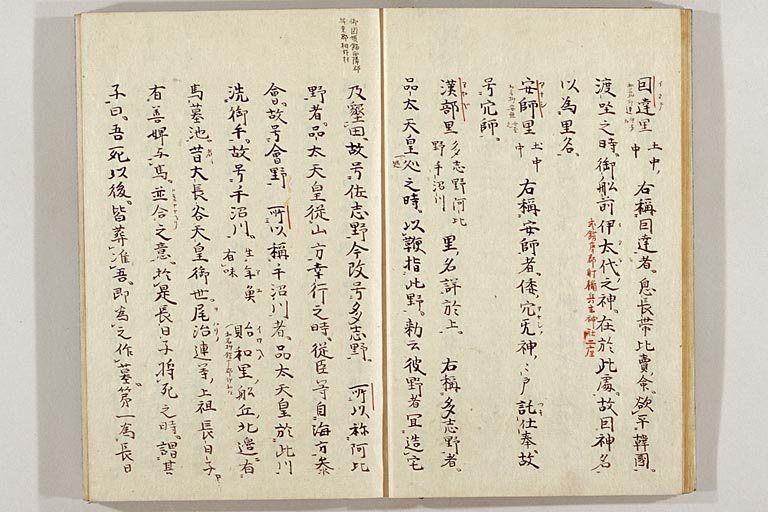 因達里 土中
中 右稱因達者。息長帶比賣命。欲平韓國。
渡坐之時。御船前伊太代之神。在於此處。故因神名
以為里名。
安師里 土中
中 右稱安師者。倭穴无神。神戶託仕奉。故
号穴師。
漢部里 多志野阿比
野手沼川 里名詳於上。 右稱多志野者。
品太天皇巡之時。以鞭指此野。勅云彼野者冝造宅
乃墾田。故号佐志野。今改号多志野。 所以称阿比
野者。品太天皇従山方幸行之時。従臣等自海方参
會。故号會野。 所以稱手沼川者。品太天皇於此川
洗御手。故号手沼川。 生年魚
有味 貽和里船丘北邊有
馬墓池。昔大長谷天皇御世。尾治連等上祖長日子
有善婢与馬。並合之意。於是長日子将死之時。謂其
子曰。吾死以後。皆葬准吾。即為之作墓。第一為長日